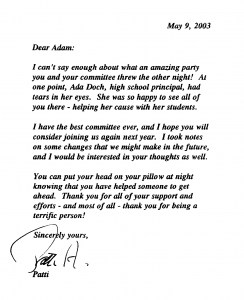 May 9, 2003
Dear Adam:
I can't say enough about what an amazing party
you and your committee threw the other night! At
one point, Ada Doch, high school principal, had
tears in her eyes. She was so happy to see all of
you there - helping her cause with her students.
I have the best committee ever, and I hope you will
consider joining us again next year. I took notes
on some changes that we might make in the future,
and I would be interested in your thoughts as well.
You can put your head on your pillow at night
knowing that you have helped someone to get
ahead. Thank you for all of your support and
efforts - and most of all - thank you for being a
terrific person!
Sincerely yours,
Patti H.
Patti